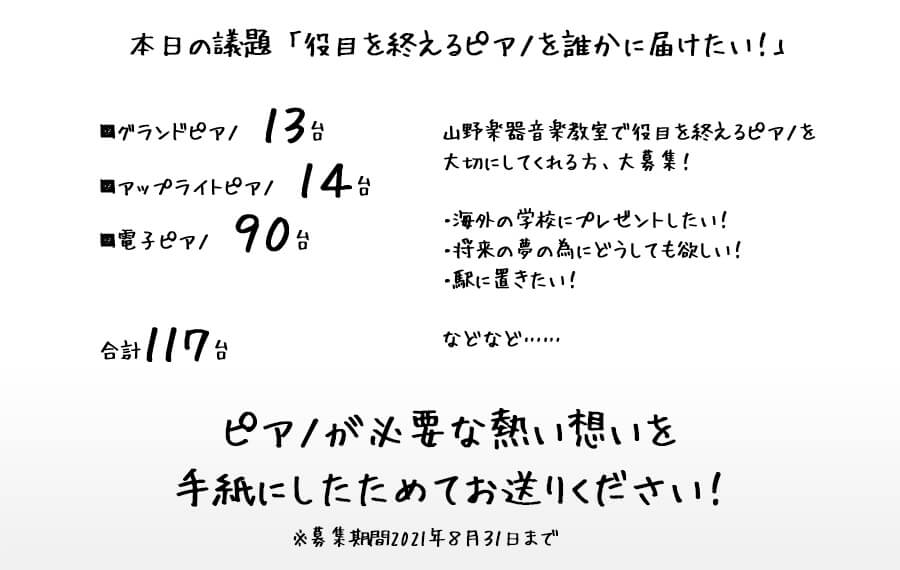 本日の議題「役目を終えるピアノを誰かに届けたい!」
■グランドピアノ 13台
■アップライトピアノ 14台
■電子ピアノ 90台
合計117台
山野楽器音楽教室で役目を終えるピアノを
大切にしてくれる方、大募集!
・海外の学校にプレゼントしたい!
・将来の夢の為にどうしても欲しい!
・駅に置きたい!
などなど……
ピアノが必要な熱い想いを
手紙にしたためてお送りください!
※募集期間2021年8月31日まで